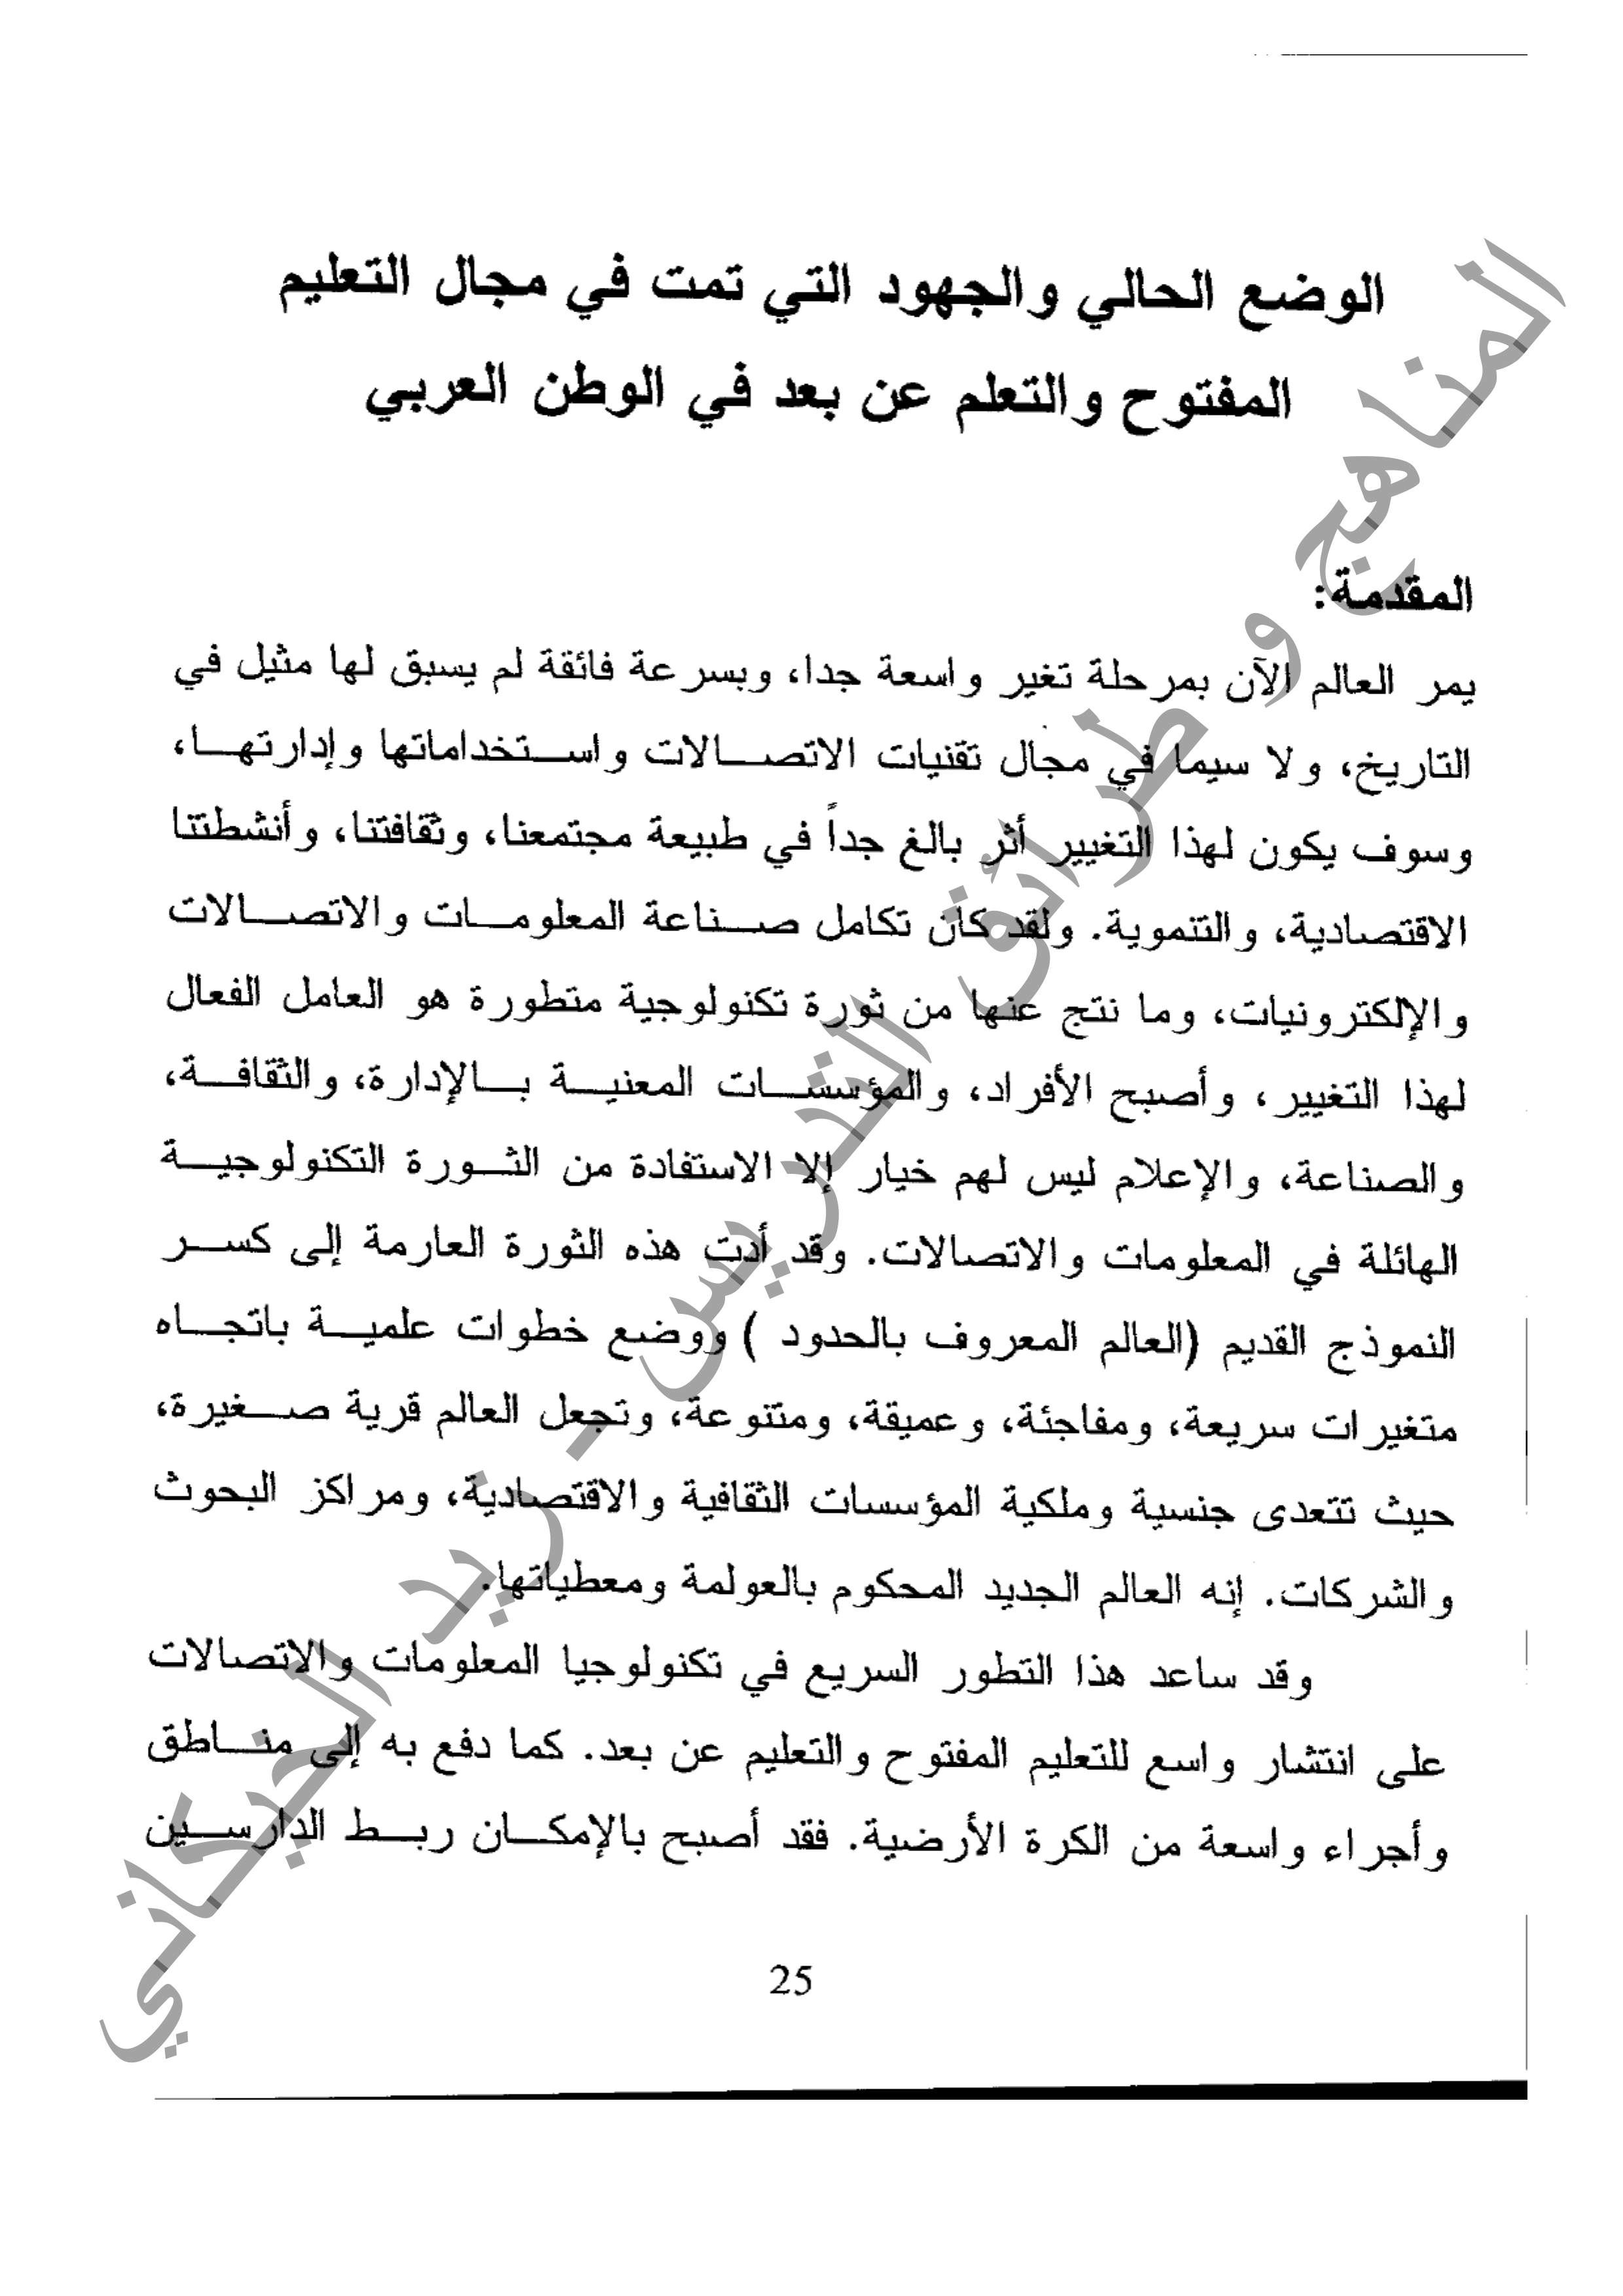 الوضع الحالي والجهود التي تمت في مجال التعليم
المفتوح والتعلم عن بعد في الوطن العربي
المقدمة:
يمر العالم الآن بمرحلة تغير واسعة جدا، وبسرعة فائقة لم يسبق لها مثيل في
التاريخ، ولا سيما في مجال تقنيات الاتصالات واستخداماتها وإدارتها،
وسوف يكون لهذا التغيير أثر بالغ جداً في طبيعة مجتمعنا، وثقافتنا، وأنشطتنا
الاقتصادية، والتنموية. ولقد كان تكامل صناعة المعلومات والاتصالات
والإلكترونيات، وما نتج عنها من ثورة تكنولوجية متطورة هو العامل الفعال
لهذا التغيير، وأصبح الأفراد، والمؤسسات المعنية بالإدارة، والثقافة،
والصناعة، والإعلام ليس لهم خيار إلا الاستفادة من الثورة التكنولوجية
الهائلة في المعلومات والاتصالات. وقد أدت هذه الثورة العارمة إلى كسر
النموذج القديم (العالم المعروف بالحدود ) ووضع خطوات علمية باتجاه
متغيرات سريعة، ومفاجئة، وعميقة، ومتنوعة، وتجعل العالم قرية صغيرة،
حيث تتعدى جنسية وملكية المؤسسات الثقافية والاقتصادية، ومراكز البحوث
والشركات. إنه العالم الجديد المحكوم بالعولمة ومعطياتها.
وقد ساعد هذا التطور السريع في تكنولوجيا المعلومات والاتصالات
على انتشار واسع للتعليم المفتوح والتعليم عن بعد. كما دفع به إلى مناطق
وأجراء واسعة من الكرة الأرضية. فقد أصبح بالإمكان ربط الدارسين
25
المناهج وطرائق التدريس - زيد الخيكاني